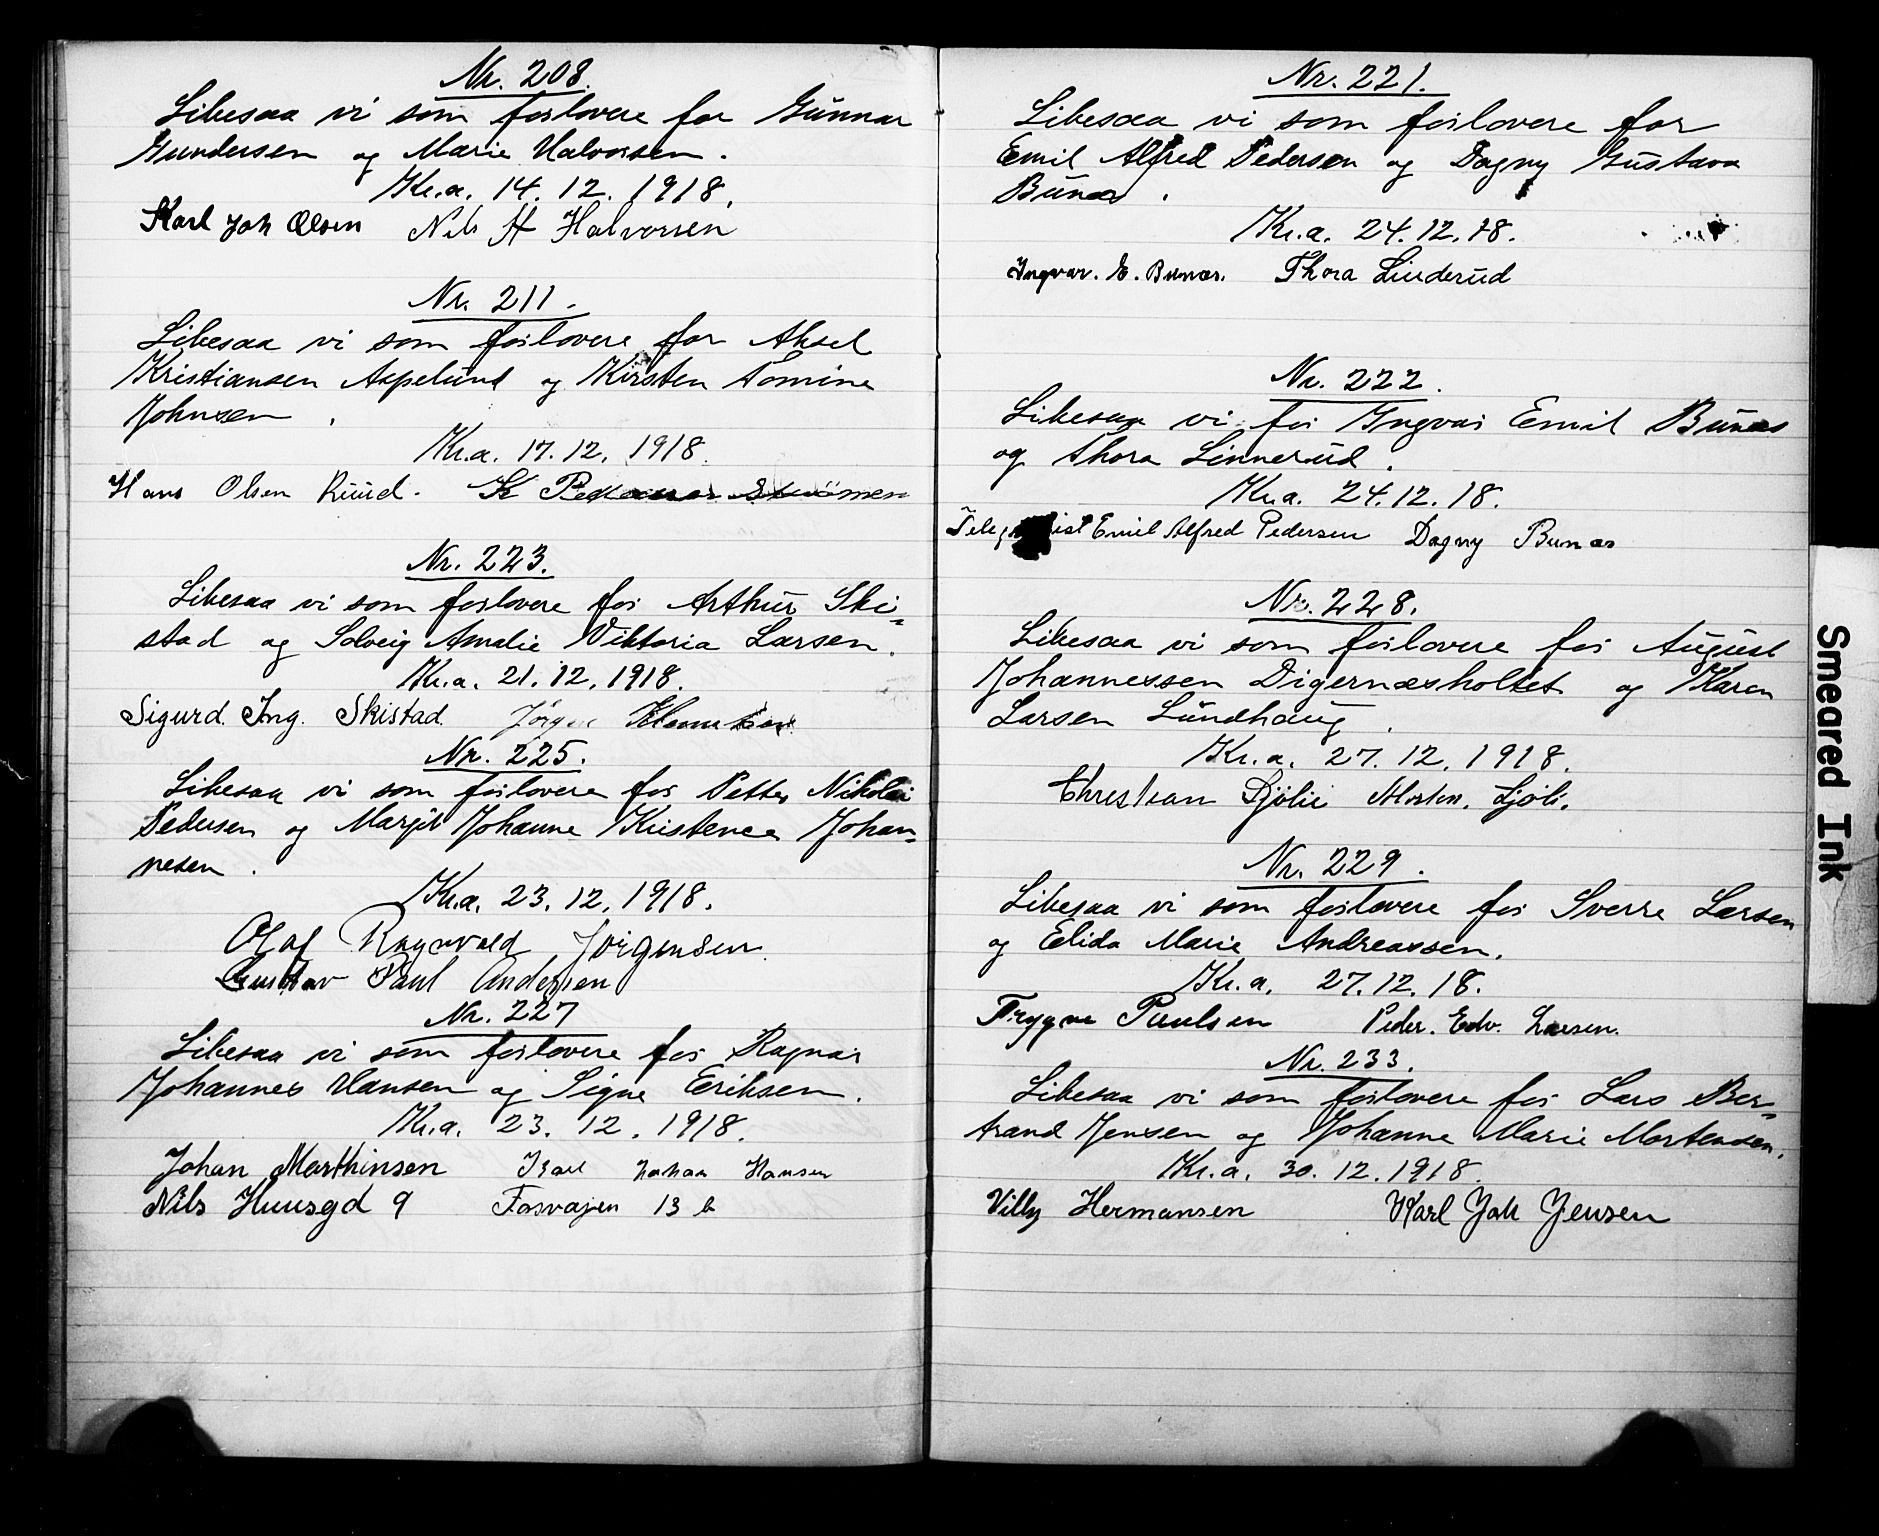 Nr. 208.
Likesaa vi som forlovere for Gunnar
Gundersen og Marie Halvorsen.
Kr.a. 14. 12. 1918.
Karl Joh Olsen Nils H Halvorsen
Nr. 211.
Likesaa vi som forlovere for Aksel
Kristiansen Aspelund og Kirsten Tomine
Johnsen.
Kr.a. 17. 12. 1918.
Hans Olsen Ruud. K
Nr. 223.
Likesaa vi som forlovere for Arthur Ski-
stad og Solveig Amalie Viktoria Larsen.
Kr.a. 21. 12. 1918.
Sigurd. Ing. Skistad. Jörgen
Nr. 225.
Likesaa vi som forlovere for Petter Nikolai
Pedersen og Margit Johanne Kristence Johan-
nesen.
Kr.a. 23. 12. 1918.
Olaf Ragnvald Jörgensen.
Gustav Paul Andersen
Nr. 227
Likesaa vi som forlovere for Ragnar
Johannes Hansen og Signe Eriksen.
Kr.a. 23. 12. 1918.
Johan Marthinsen Karl Johan Hansen
Nils Huusgd 9 Fosvajen 13 b
Nr. 221.
Likesaa vi som forlovere for
Emil Alfred Pedersen og Dagny Gustava
Bunæs.
Kr.a. 24. 12. 18.
Ingvar. E. Bunæs. Thora Linderud
Nr. 222.
Likesaa vi for Ingvar Emil Bunæs
og Thora Linnerud.
Kr.a. 24. 12. 18.
Emil Alfred Pedersen Dagny Bunæs
Nr. 228.
Likesaa vi som forlovere for August
Johannessen Digernæsholtet og Karen
Larsen Lundhaug.
Kr.a. 27. 12. 1918.
Christian Ljölie Morten. Ljöli.
Nr. 229.
Likesaa vi som forlovere for Sverre Larsen
og Elida Marie Andreassen.
Kr.a. 27. 12. 18.
Trygve Paulsen Peder. Edv. Larsen.
Nr. 233.
Likesaa vi som forlovere for Lars Ber-
trand Jensen og Johanne Marie Mortensen.
Kr.a. 30. 12. 1918.
Villy Hermansen Karl Joh Jensen
Smeared Ink